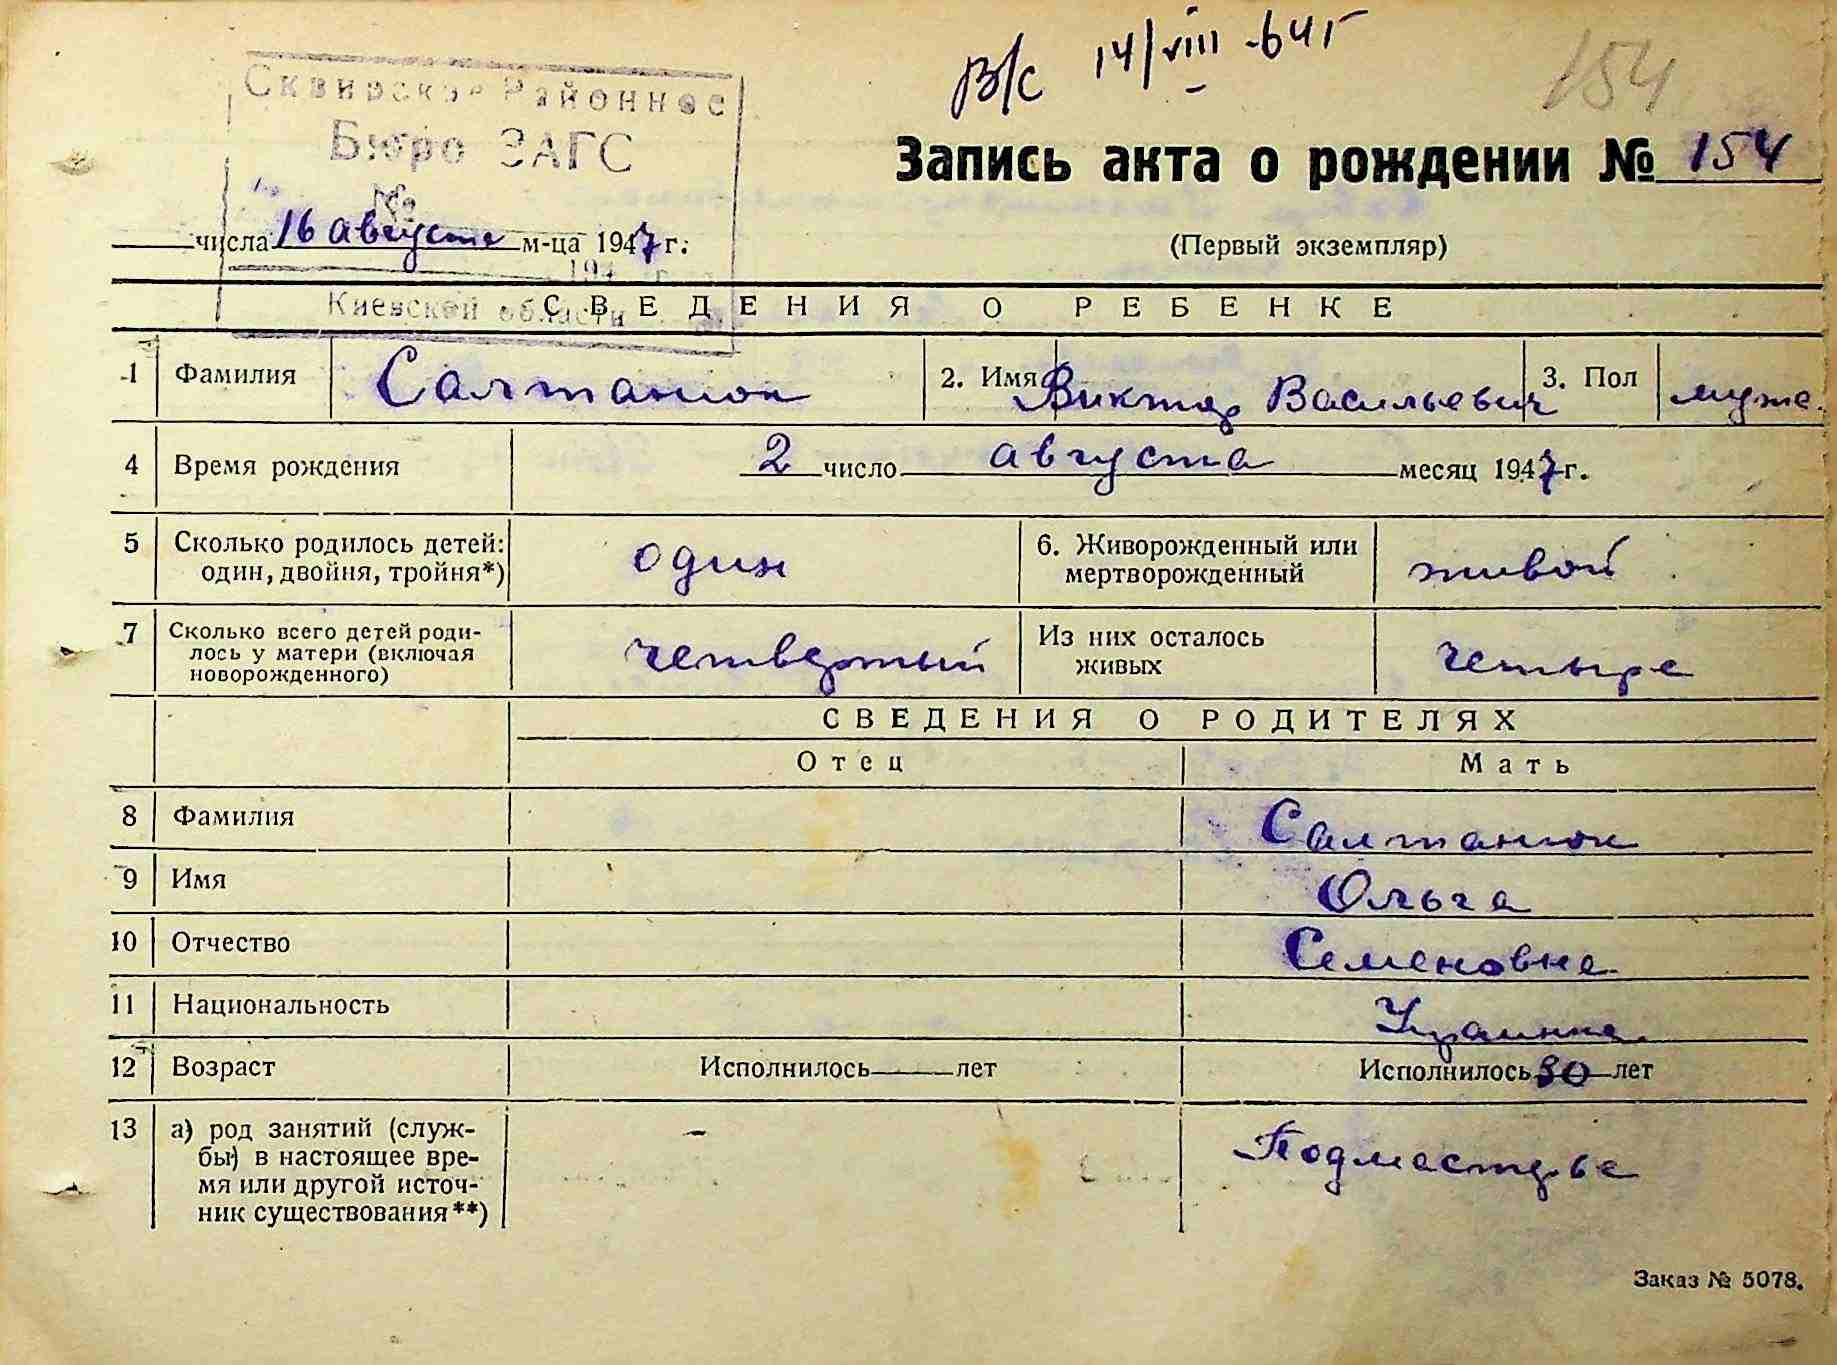 В/с 14/VIII -64 г
154
Сквирское Районное
Бюро ЗАГС
№
194 г.
Киевской области
Запись акта о рождении № 154
числа 16 августа м-ца 1947 г.
(Первый экземпляр)
СВЕДЕНИЯ О РЕБЕНКЕ
1 Фамилия Салтанюк 2. Имя Виктор Васильевич 3. Пол муже.
4 Время рождения 2 число августа месяц 1947 г.
5 Сколько родилось детей: один 6. Живорожденный или живой
один, двойня, тройня*) мертворожденный
7 Сколько всего детей роди- четвертый Из них осталось четыре
лось у матери (включая живых
новорожденного)
СВЕДЕНИЯ О РОДИТЕЛЯХ
Отец Мать
8 Фамилия Салтанюк
9 Имя Ольга
10 Отчество Семеновна
11 Национальность Украинка
12 Возраст Исполнилось — лет Исполнилось 30 лет
13 а) род занятий (служ- – Подмастерье
бы) в настоящее вре-
мя или другой источ-
ник существования**)
Заказ № 5078.